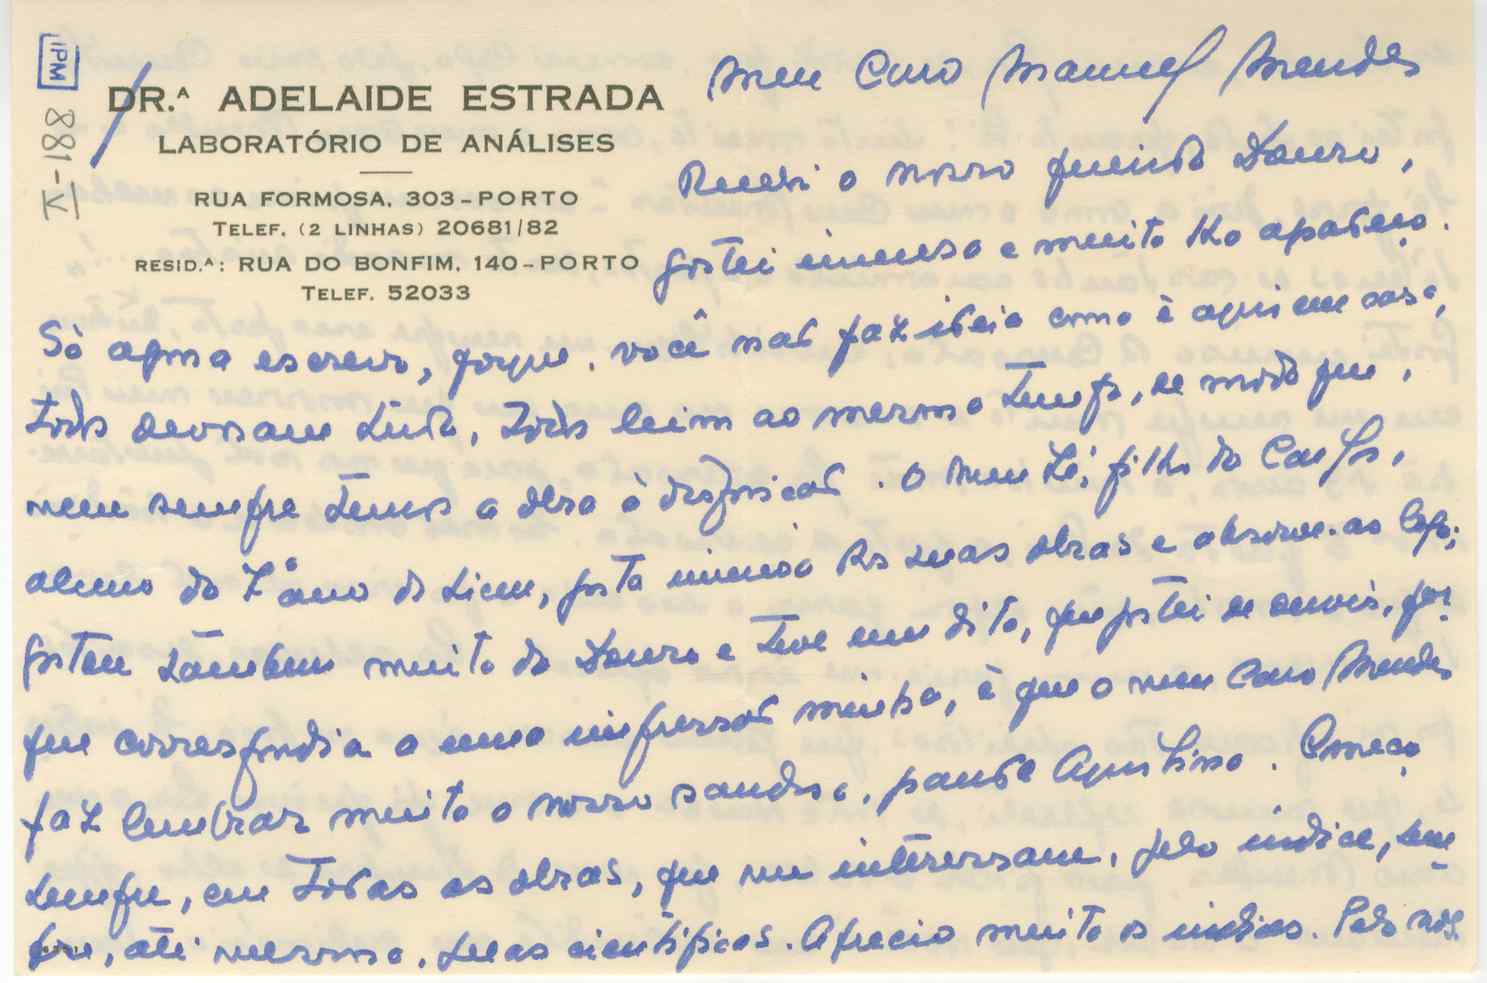 IPM
881-V
DR.ᴬ ADELAIDE ESTRADA
LABORATÓRIO DE ANÁLISES
RUA FORMOSA, 303-PORTO
TELEF. (2 LINHAS) 20681/82
RESID.ᴬ: RUA DO BONFIM, 140-PORTO
TELEF. 52033
Meu Caro Manuel Mendes
Recebi o nosso querido Douro,
gostei imenso e muito lho agradeço.
Só agora escrevo, porque, você não faz ideia como é aqui em casa,
todos devoram tudo, todos leem ao mesmo tempo, de modo que,
nem sempre temos a obra à disposição. O meu Zé, filho do Carlos,
aluno do 7º ano do Liceu, gosta imenso das suas obras e absorve-as logo;
gostou também muito do Douro e teve um dito, que gostei de ouvir, por
que correspondia a uma impressão minha, é que o meu Caro Mendes
faz lembrar muito o nosso saudoso, grande Aquilino. Começo
sempre, em todas as obras, que me interessam, pelo indice, sem
pre, até mesmo, nas cientificas. Aprecio muito os indices. Pelo